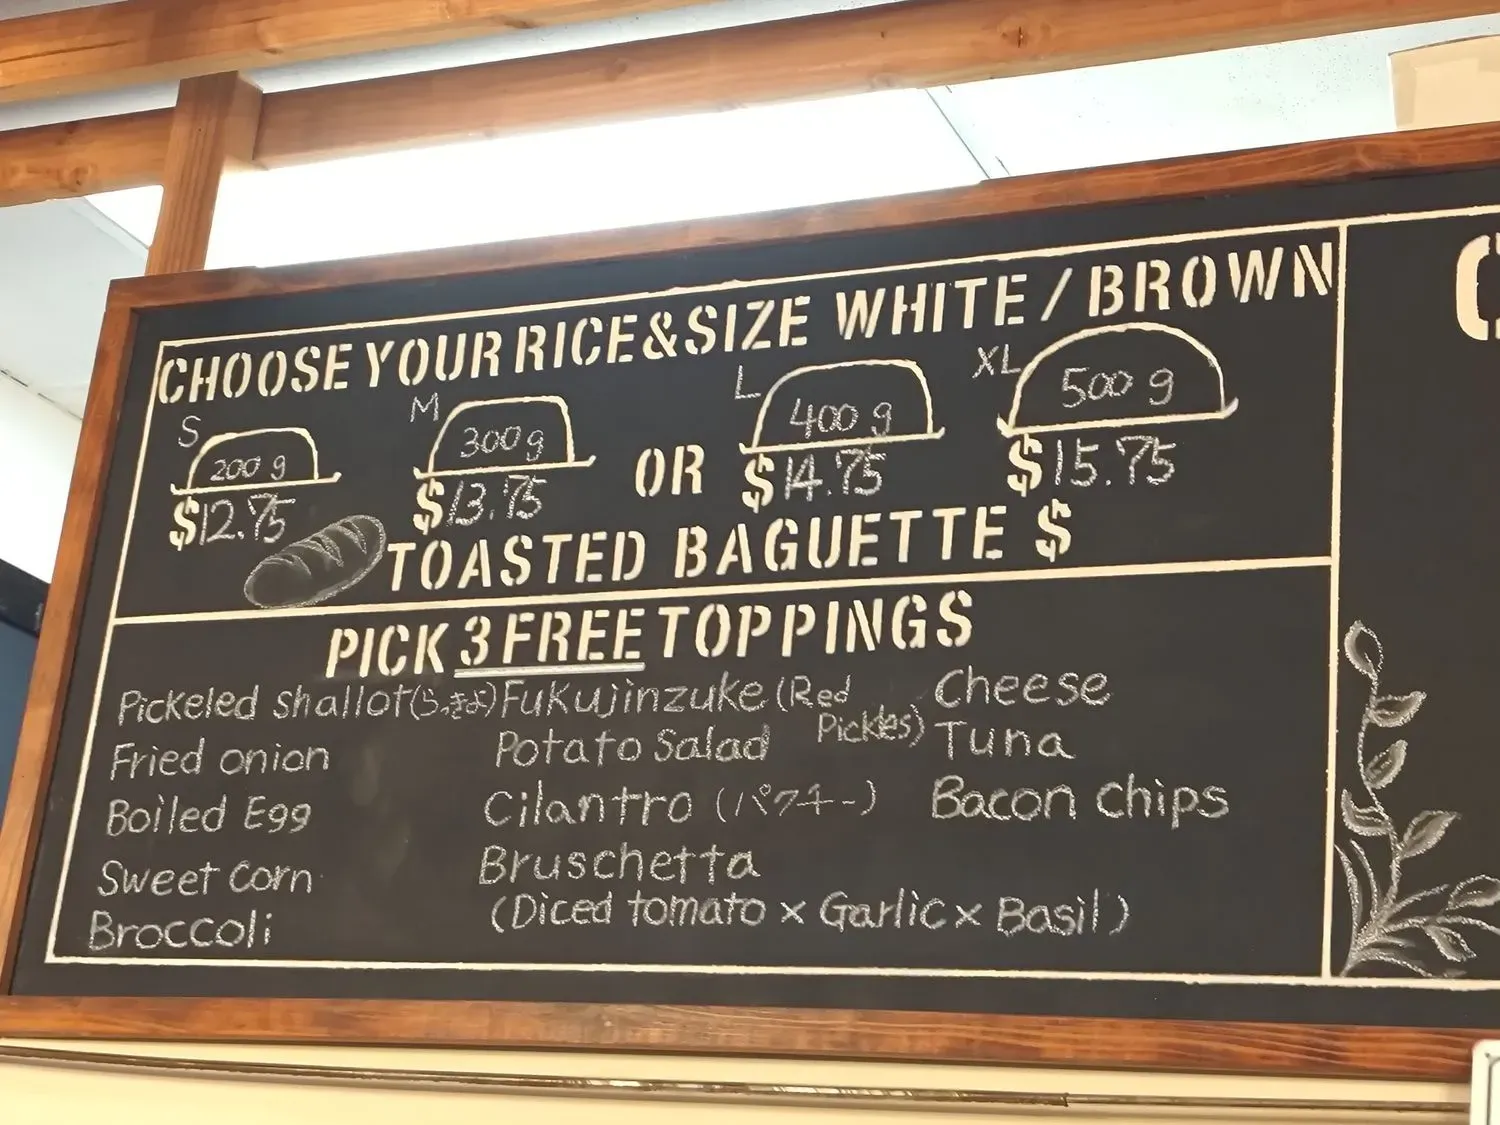 CHOOSE YOUR RICE & SIZE WHITE / BROWN
S 200g $12.75
M 300g $13.75
OR
L 400g $14.75
XL 500g $15.75
TOASTED BAGUETTE $
PICK 3 FREE TOPPINGS
Pickeled shallot(らっきょ)
Fried onion
Boiled Egg
Sweet corn
Broccoli
Fukujinzuke (Red Pickles)
Potato Salad
Cilantro (パクチー)
Bruschetta
(Diced tomato x Garlic x Basil)
Cheese
Tuna
Bacon chips